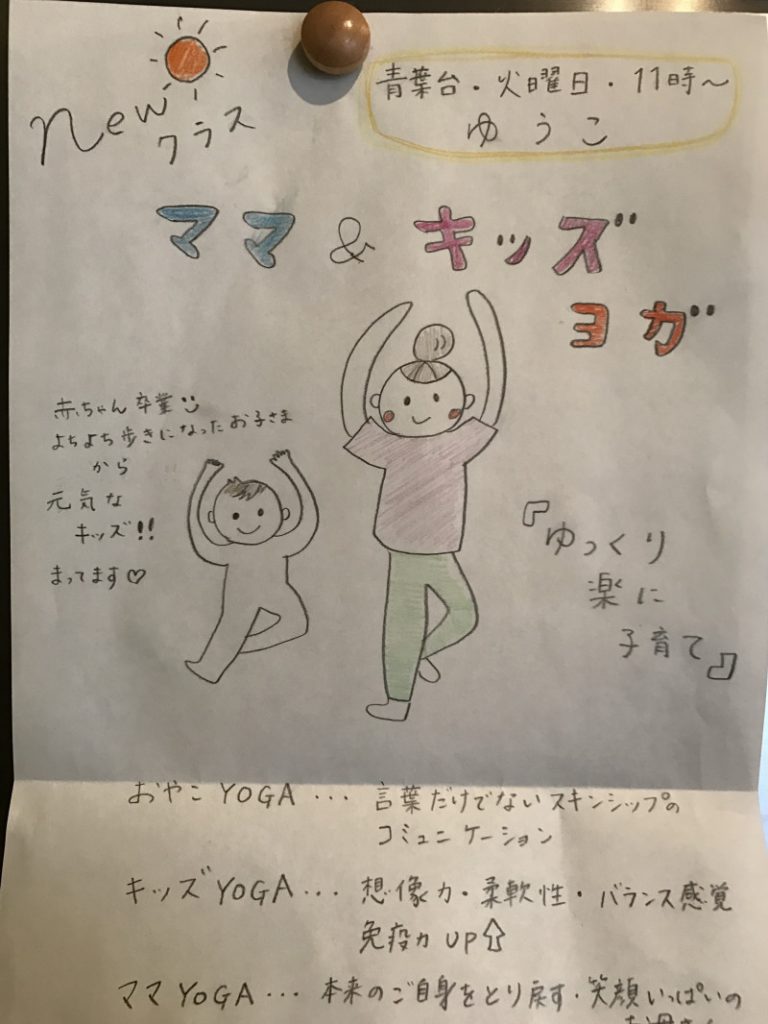 New
クラス
青葉台・火曜日・11時〜
ゆうこ
ママ & キッズ
ヨガ
赤ちゃん卒業
よちよち歩きになったお子さま
から
元気な
キッズ!!
まってます♡
『ゆっくり
楽に
子育て』
おやこ YOGA ・・・ 言葉だけでないスキンシップの
コミュニケーション
キッズ YOGA ・・・ 想像力・柔軟性・バランス感覚
免疫力 UP⇧
ママ YOGA ・・・ 本来のご自身をとり戻す・笑顔いっぱいの